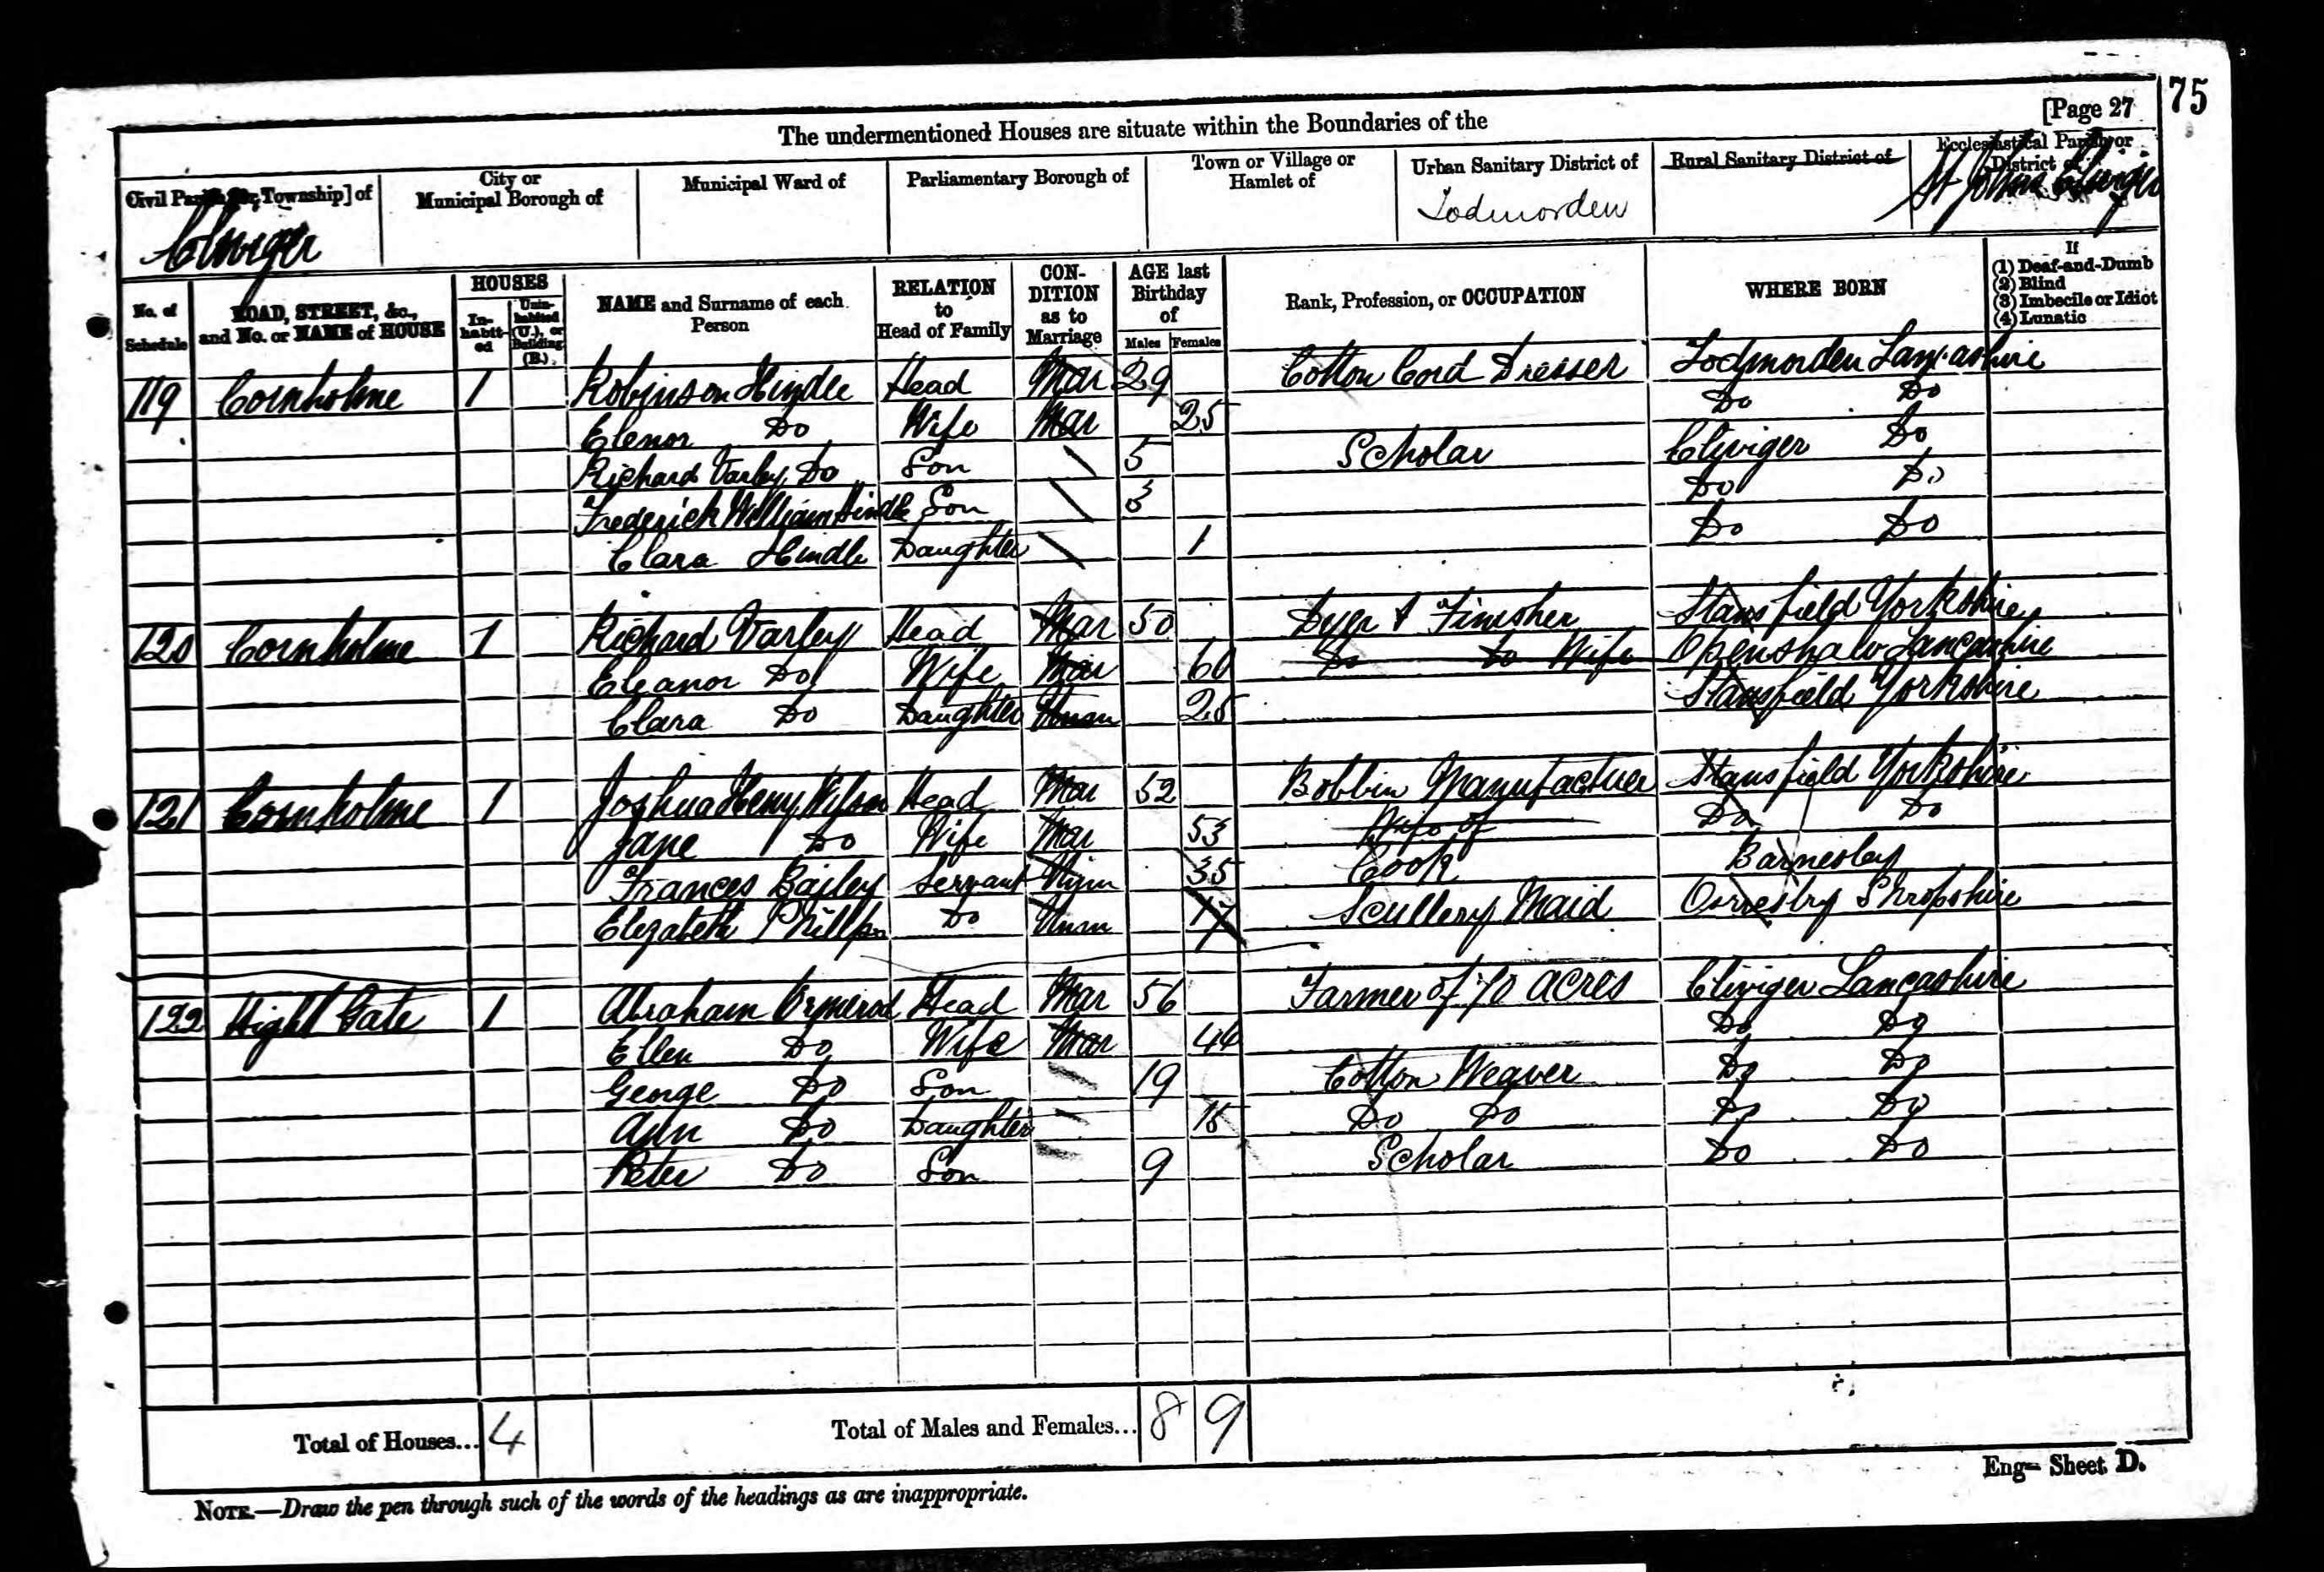 [Page 27
75
The undermentioned Houses are situate within the Boundaries of the
Civil Parish [or Township] of
City or Municipal Borough of
Municipal Ward of
Parliamentary Borough of
Town or Village or Hamlet of
Urban Sanitary District of
Rural Sanitary District of
Ecclesiastical Parish or District of
Cliviger Todmorden St Johns Cliviger
No. of Schedule
ROAD, STREET, &c., and No. or NAME of HOUSE
HOUSES
In-habit-ed
Unin-habited (U.), or Building (B.)
NAME and Surname of each Person
RELATION to Head of Family
CON-DITION as to Marriage
AGE last Birthday of
Males Females
Rank, Profession, or OCCUPATION
WHERE BORN
If
(1) Deaf-and-Dumb
(2) Blind
(3) Imbecile or Idiot
(4) Lunatic
119 Cornholme 1 Robinson Hindle Head Mar 29 Cotton Cord Dresser Todmorden Lancashire
Elenor Do Wife Mar 25 Do Do
Richard Varley Do Son 5 Scholar Cliviger Do
Frederick William Hindle Son 3 Do Do
Clara Hindle Daughter 1 Do Do
120 Cornholme 1 Richard Varley Head Mar 50 Dyer & Finisher Stansfield Yorkshire
Eleanor Do Wife Mar 60 Do Do Wife Openshaw Lancashire
Clara Do Daughter Unm 25 Stansfield Yorkshire
121 Cornholme 1 Joshua Henry Wilson Head Mar 52 Bobbin Manufacturer Stansfield Yorkshire
Jane Do Wife Mar 53 Wife of Do Do
Frances Bailey Servant Unm 35 Cook Barnesley
Elizabeth Phillps Do Unm 17 Scullery Maid Oswestry Shropshire
122 Hight Gate 1 Abraham Ormerod Head Mar 56 Farmer of 70 acres Cliviger Lancashire
Ellen Do Wife Mar 44 Do Do
George Do Son 19 Cotton Weaver Do Do
Ann Do Daughter 15 Do Do Do Do
Peter Do Son 9 Scholar Do Do
Total of Houses... 4 Total of Males and Females... 8 9
Eng— Sheet D.
NOTE.—Draw the pen through such of the words of the headings as are inappropriate.